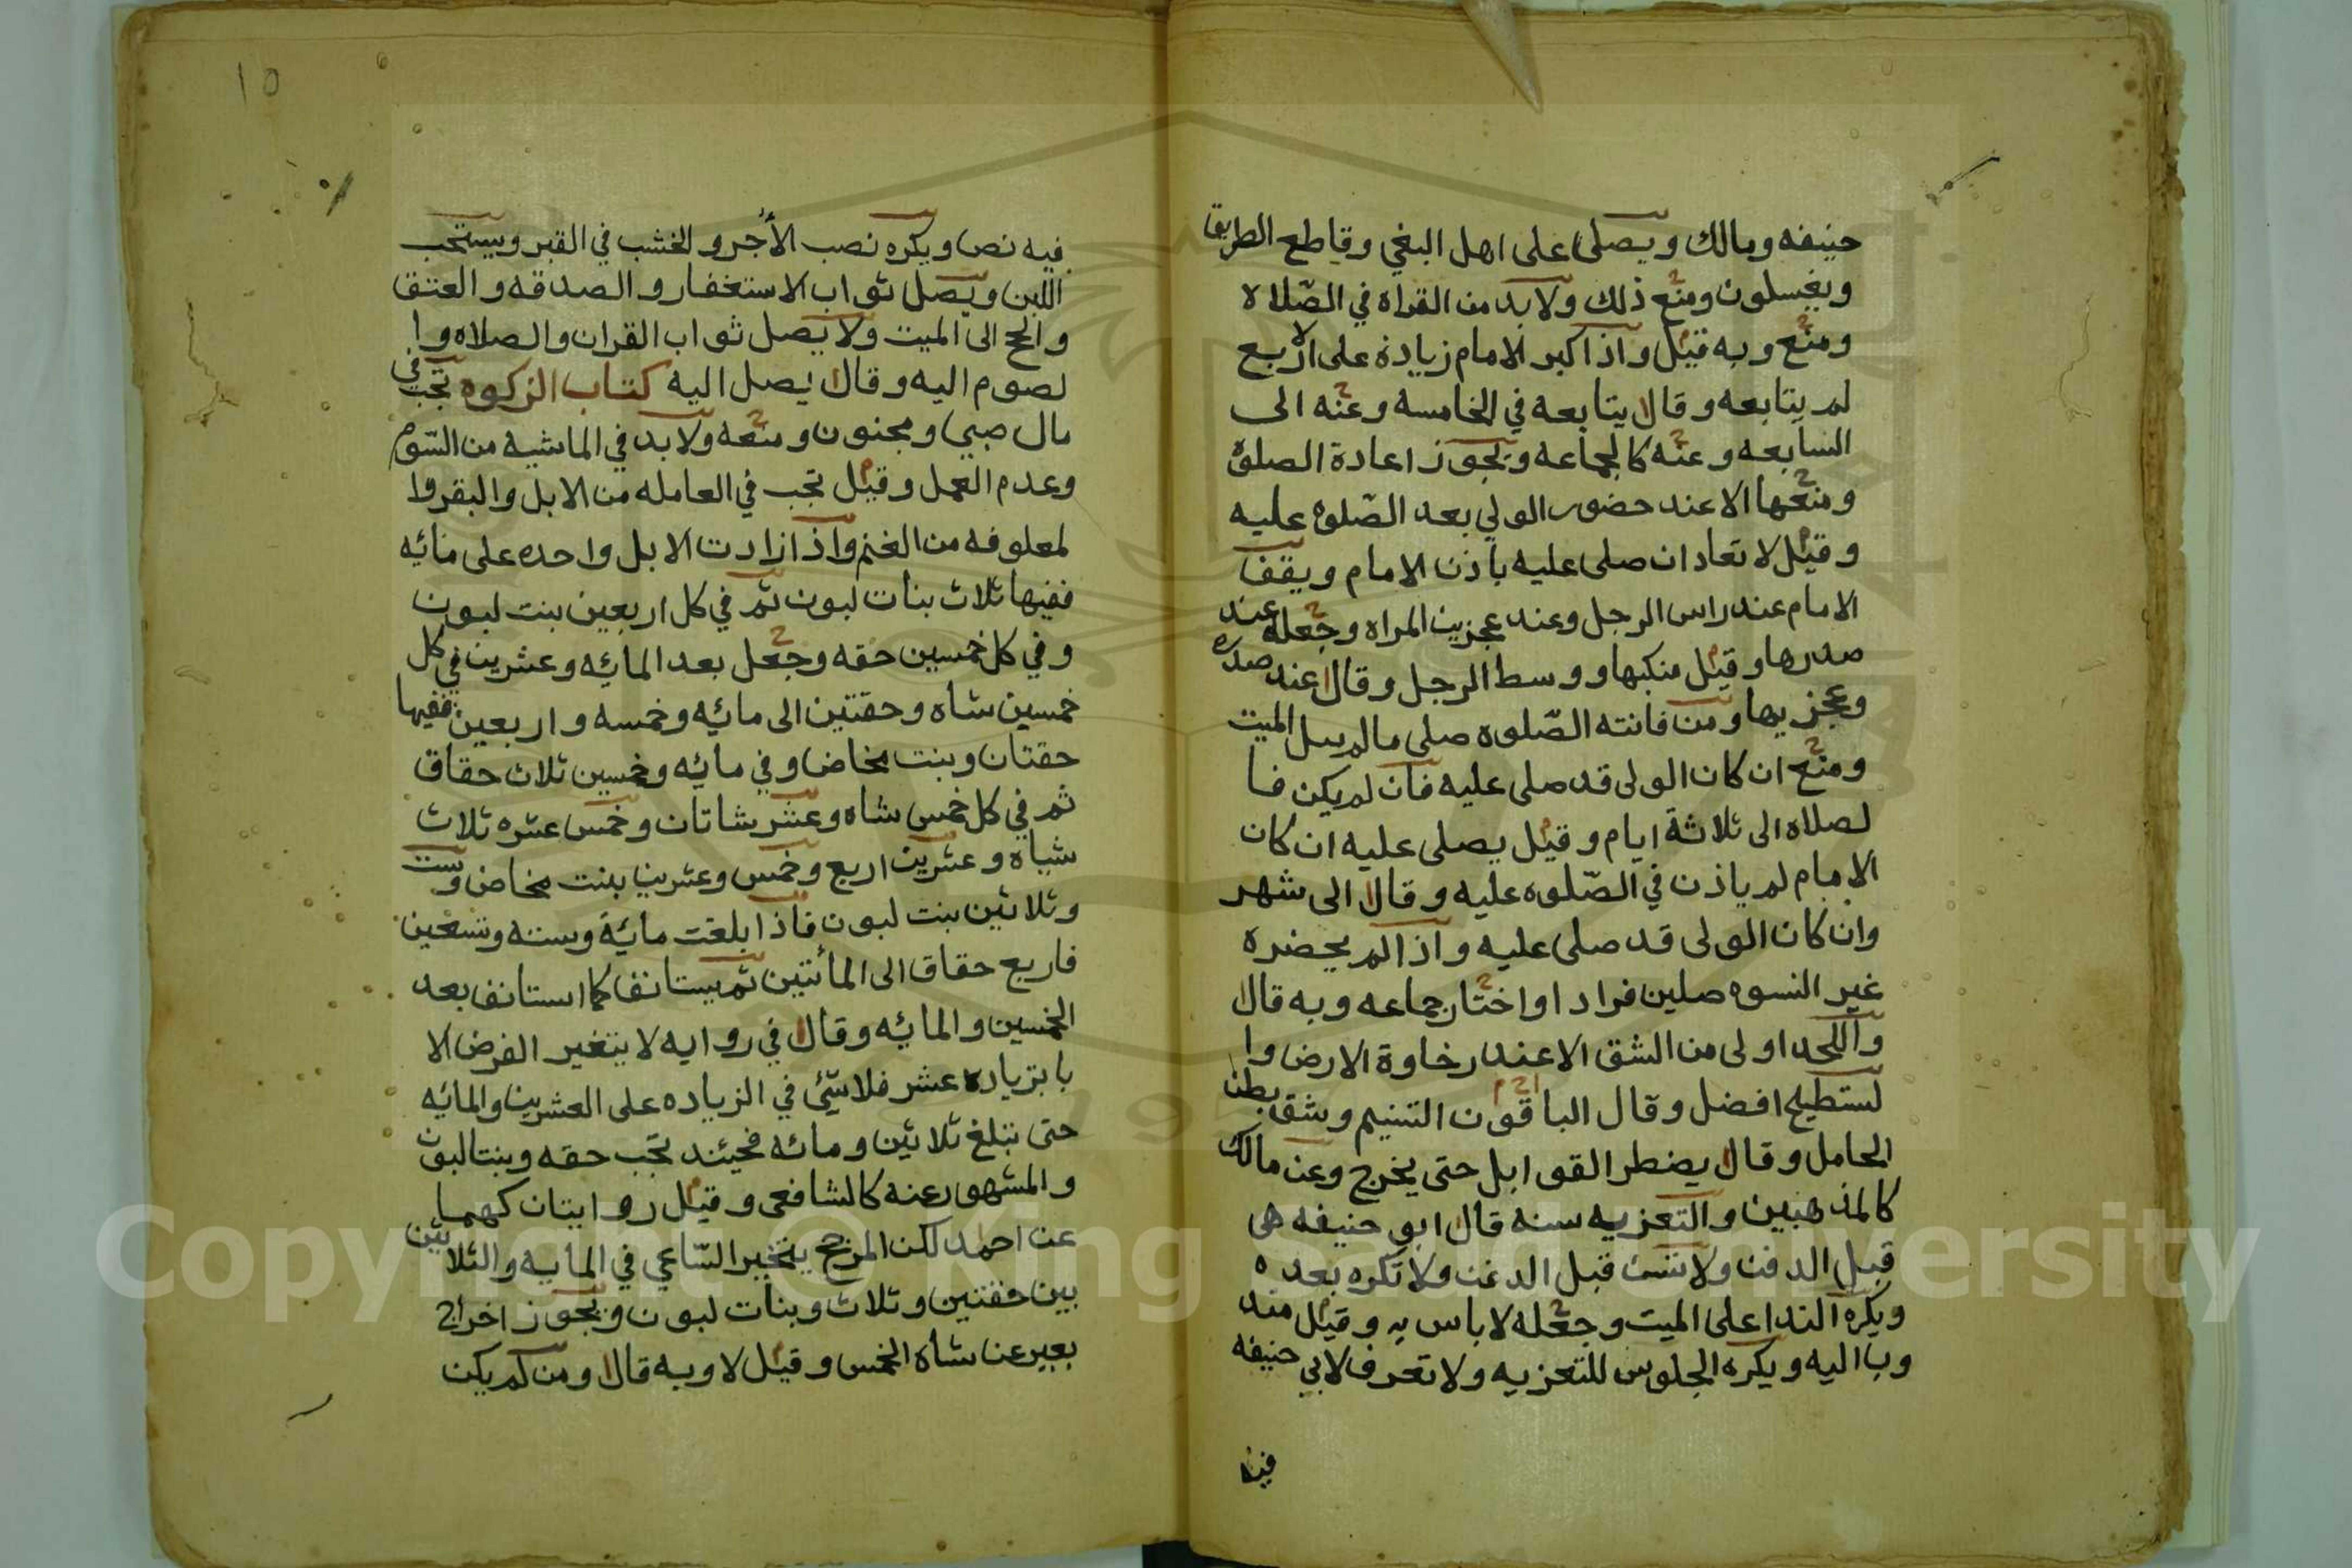 حنيفه ومالك ويصلى على اهل البغي وقاطع الطريق
ويغسلون ومنع ذلك ولابد من القراه في الصلاه
ومنع وبه قيل واذا كبر الامام زيادة على الاربع
لم يتابعه وقال يتابعه في الخامسه وعنه الى
السابعه وعنه كالجماعه ويجوز اعادة الصلوة
ومنعها الا عند حضور الولي بعد الصلوه عليه
وقيل لا تعاد ان صلى عليه باذن الامام ويقف
الامام عند راس الرجل وعند عجزين المراه وجعله عند
صدرها وقيل منكبها ووسط الرجل وقال عند صدره
وعجزيها ومن فاتته الصلوه صلى مالم يبل الميت
ومنع ان كان الولى قد صلى عليه فان لم يكن فا
لصلاه الى ثلاثة ايام وقيل يصلى عليه ان كان
الامام لم ياذن في الصلوه عليه وقال الى شهر
وان كان الولى قد صلى عليه واذا لم يحضره
غير النسوه صلين فرادا واختار جماعه وبه قال
واللحد اولى من الشق الا عند رخاوة الارض وا
لتسطيح افضل وقال الباقون التسنيم وشق بطن
الحامل وقال يضطر القوابل حتى يخرج وعن مالك
كالمذهبين والتعزيه سنه قال ابو حنيفه هى
قبل الدفن ولا تسن قبل الدفن ولا تكره بعده
ويكره الندا على الميت وجعله لا باس به وقيل مند
وبا اليه ويكره الجلوس للتعزيه ولا تعرف لابي حنيفه
فيه
١٥
فيه نص ويكره نصب الأجر والخشب في القبر ويستحب
اللبن ويصل ثواب الاستغفار والصدقه والعتق
والحج الى الميت ولا يصل ثواب القران والصلاه وا
لصوم اليه وقال يصل اليه كتاب الزكوه تجب في
مال صبي ومجنون ومنعه ولابد في الماشيه من السوم
وعدم العمل وقيل تجب في العامله من الابل والبقر وا
لمعلوفه من الغنم واذا زادت الابل واحده على مائه
ففيها ثلاث بنات لبون ثم في كل اربعين بنت لبون
وفي كل خمسين حقه وجعل بعد المائه وعشرين في كل
خمسين شاه وحقتين الى مائه وخمسه واربعين ففيها
حقتان وبنت مخاض وفي مائه وخمسين ثلاث حقاق
ثم في كل خمس شاه وعشر شاتان وخمس عشره ثلاث
شياه وعشرين اربع وخمس وعشرين بنت مخاض وست
وثلاثين بنت لبون فاذا بلغت مائة وسته وتسعين
فاربع حقاق الى المأتين ثم يستانف كما استانف بعد
الخمسين والمائه وقال في روايه لا يتغير الفرض الا
بابزياده عشر فلا شئ في الزياده على العشرين والمائه
حتى تبلغ ثلاثين ومائه فحيئند تجب حقه وبنتا لبون
والمشهور عنه كالشافعى وقيل روايتان كهما
عن احمد لكن المرجح يتخير الساعي في المايه والثلاثين
بين حقتين وثلاث وبنات لبون ويجوز اخراج
بعير عن شاه الخمس وقيل لا وبه قال ومن لم يكن
Copyright © King Saud University